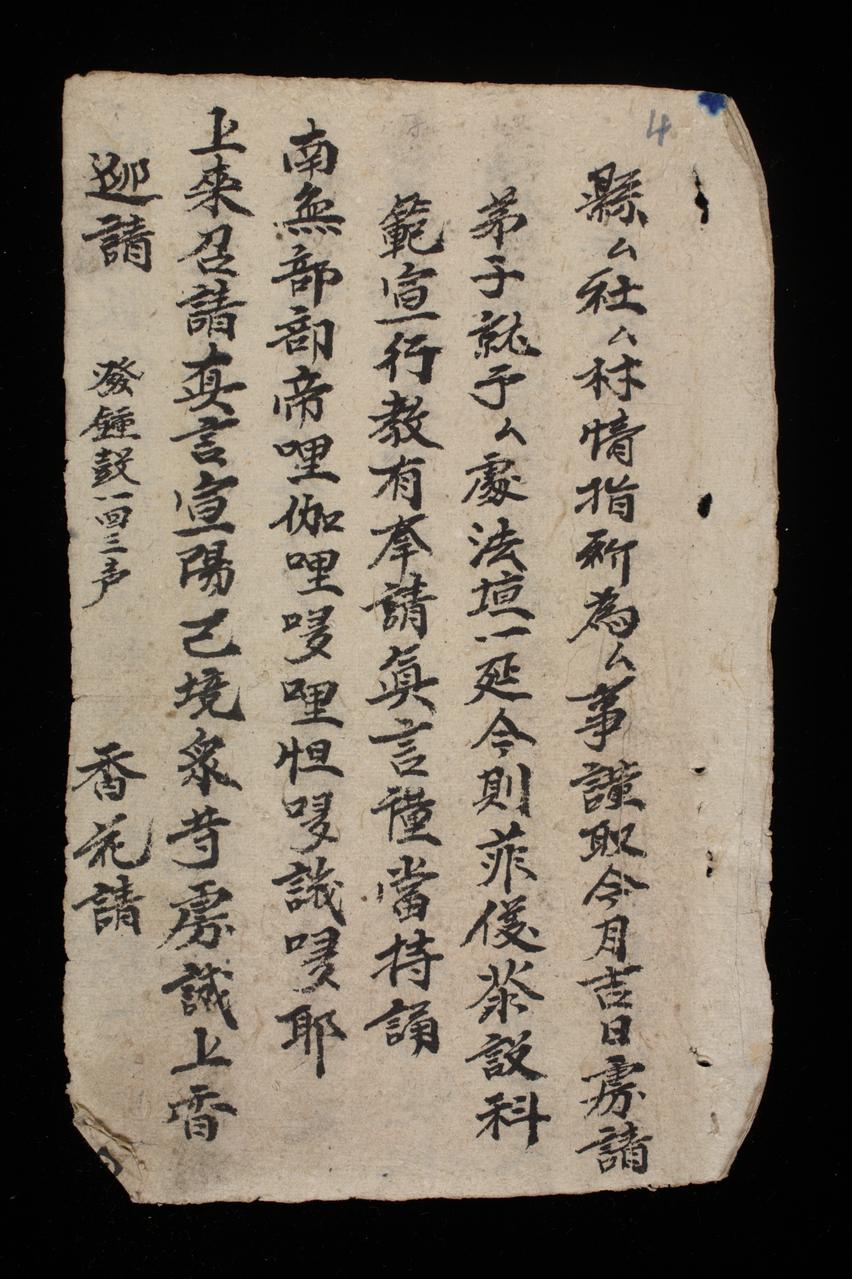 4
縣厶社厶村情指所為厶事謹取今月吉日虔請
弟子就于厶處法壇一延今則菲儀茶設科
範宣行教有奉請真言謹當持誦
南無部部帝哩伽哩哆哩怛哆誐哆耶
上來召請真言宣陽已境衆䓁虔誠上香
迎請 發鍾鼓一回三声 香花請